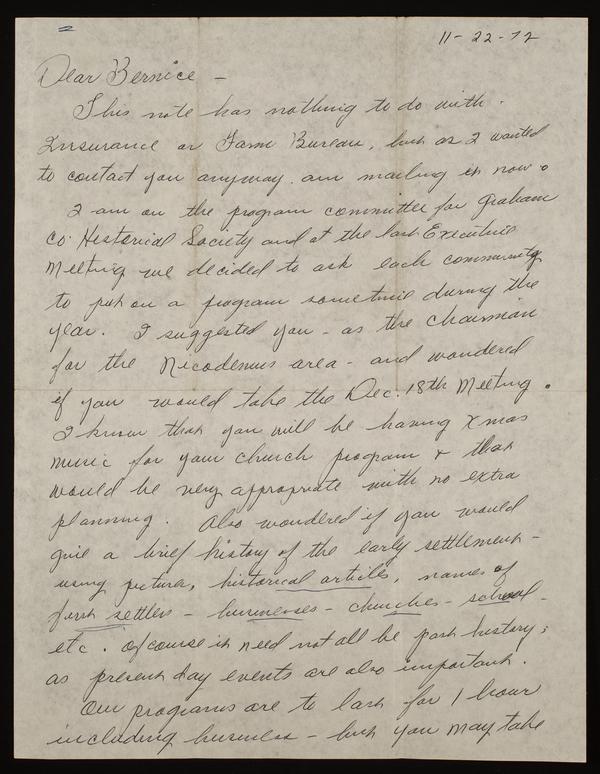 11-22-72
Dear Bernice -
This note has nothing to do with
Insurance or Farm Bureau, but as I wanted
to contact you anyway. am mailing it now.
I am on the program committee for Graham
Co. Historical Society and at the last Executive
Meeting we decided to ask each community
to put on a program sometime during the
year. I suggested you - as the Chairman
for the Nicodemus area - and wondered
if you would take the Dec. 18th Meeting.
I know that you will be having Xmas
music for your church program & that
would be very appropriate with no extra
planning. Also wondered if you would
give a brief history of the early settlement -
using pictures, historical articles, names of
first settlers - businesses - churches - school -
etc. Of course it need not all be past history;
as present day events are also important.
Our programs are to last for 1 hour
including business - but you may take